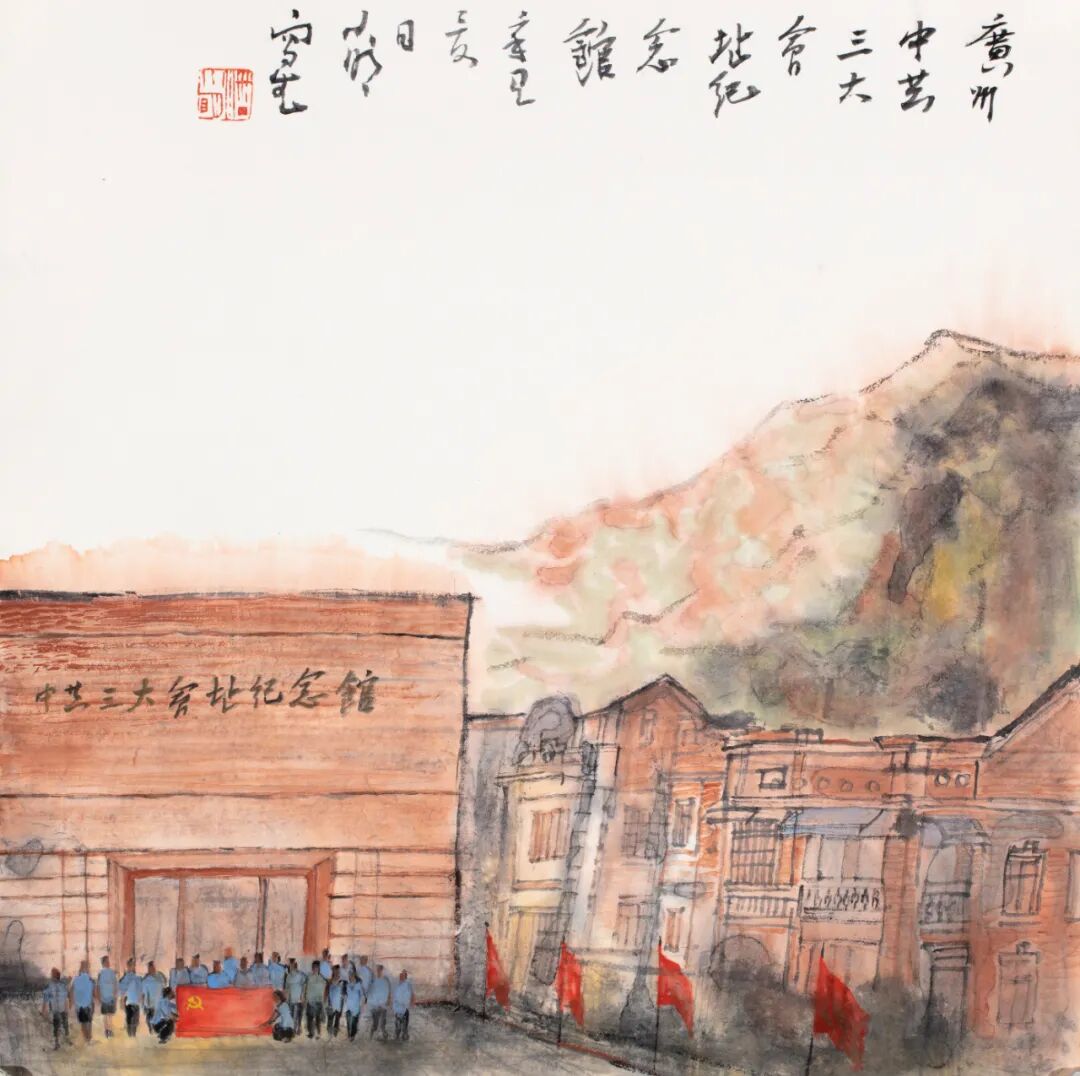 廣州
中共
三大
會
址纪
念
館
辛丑
夏
日
寫生
中共三大會址纪念館